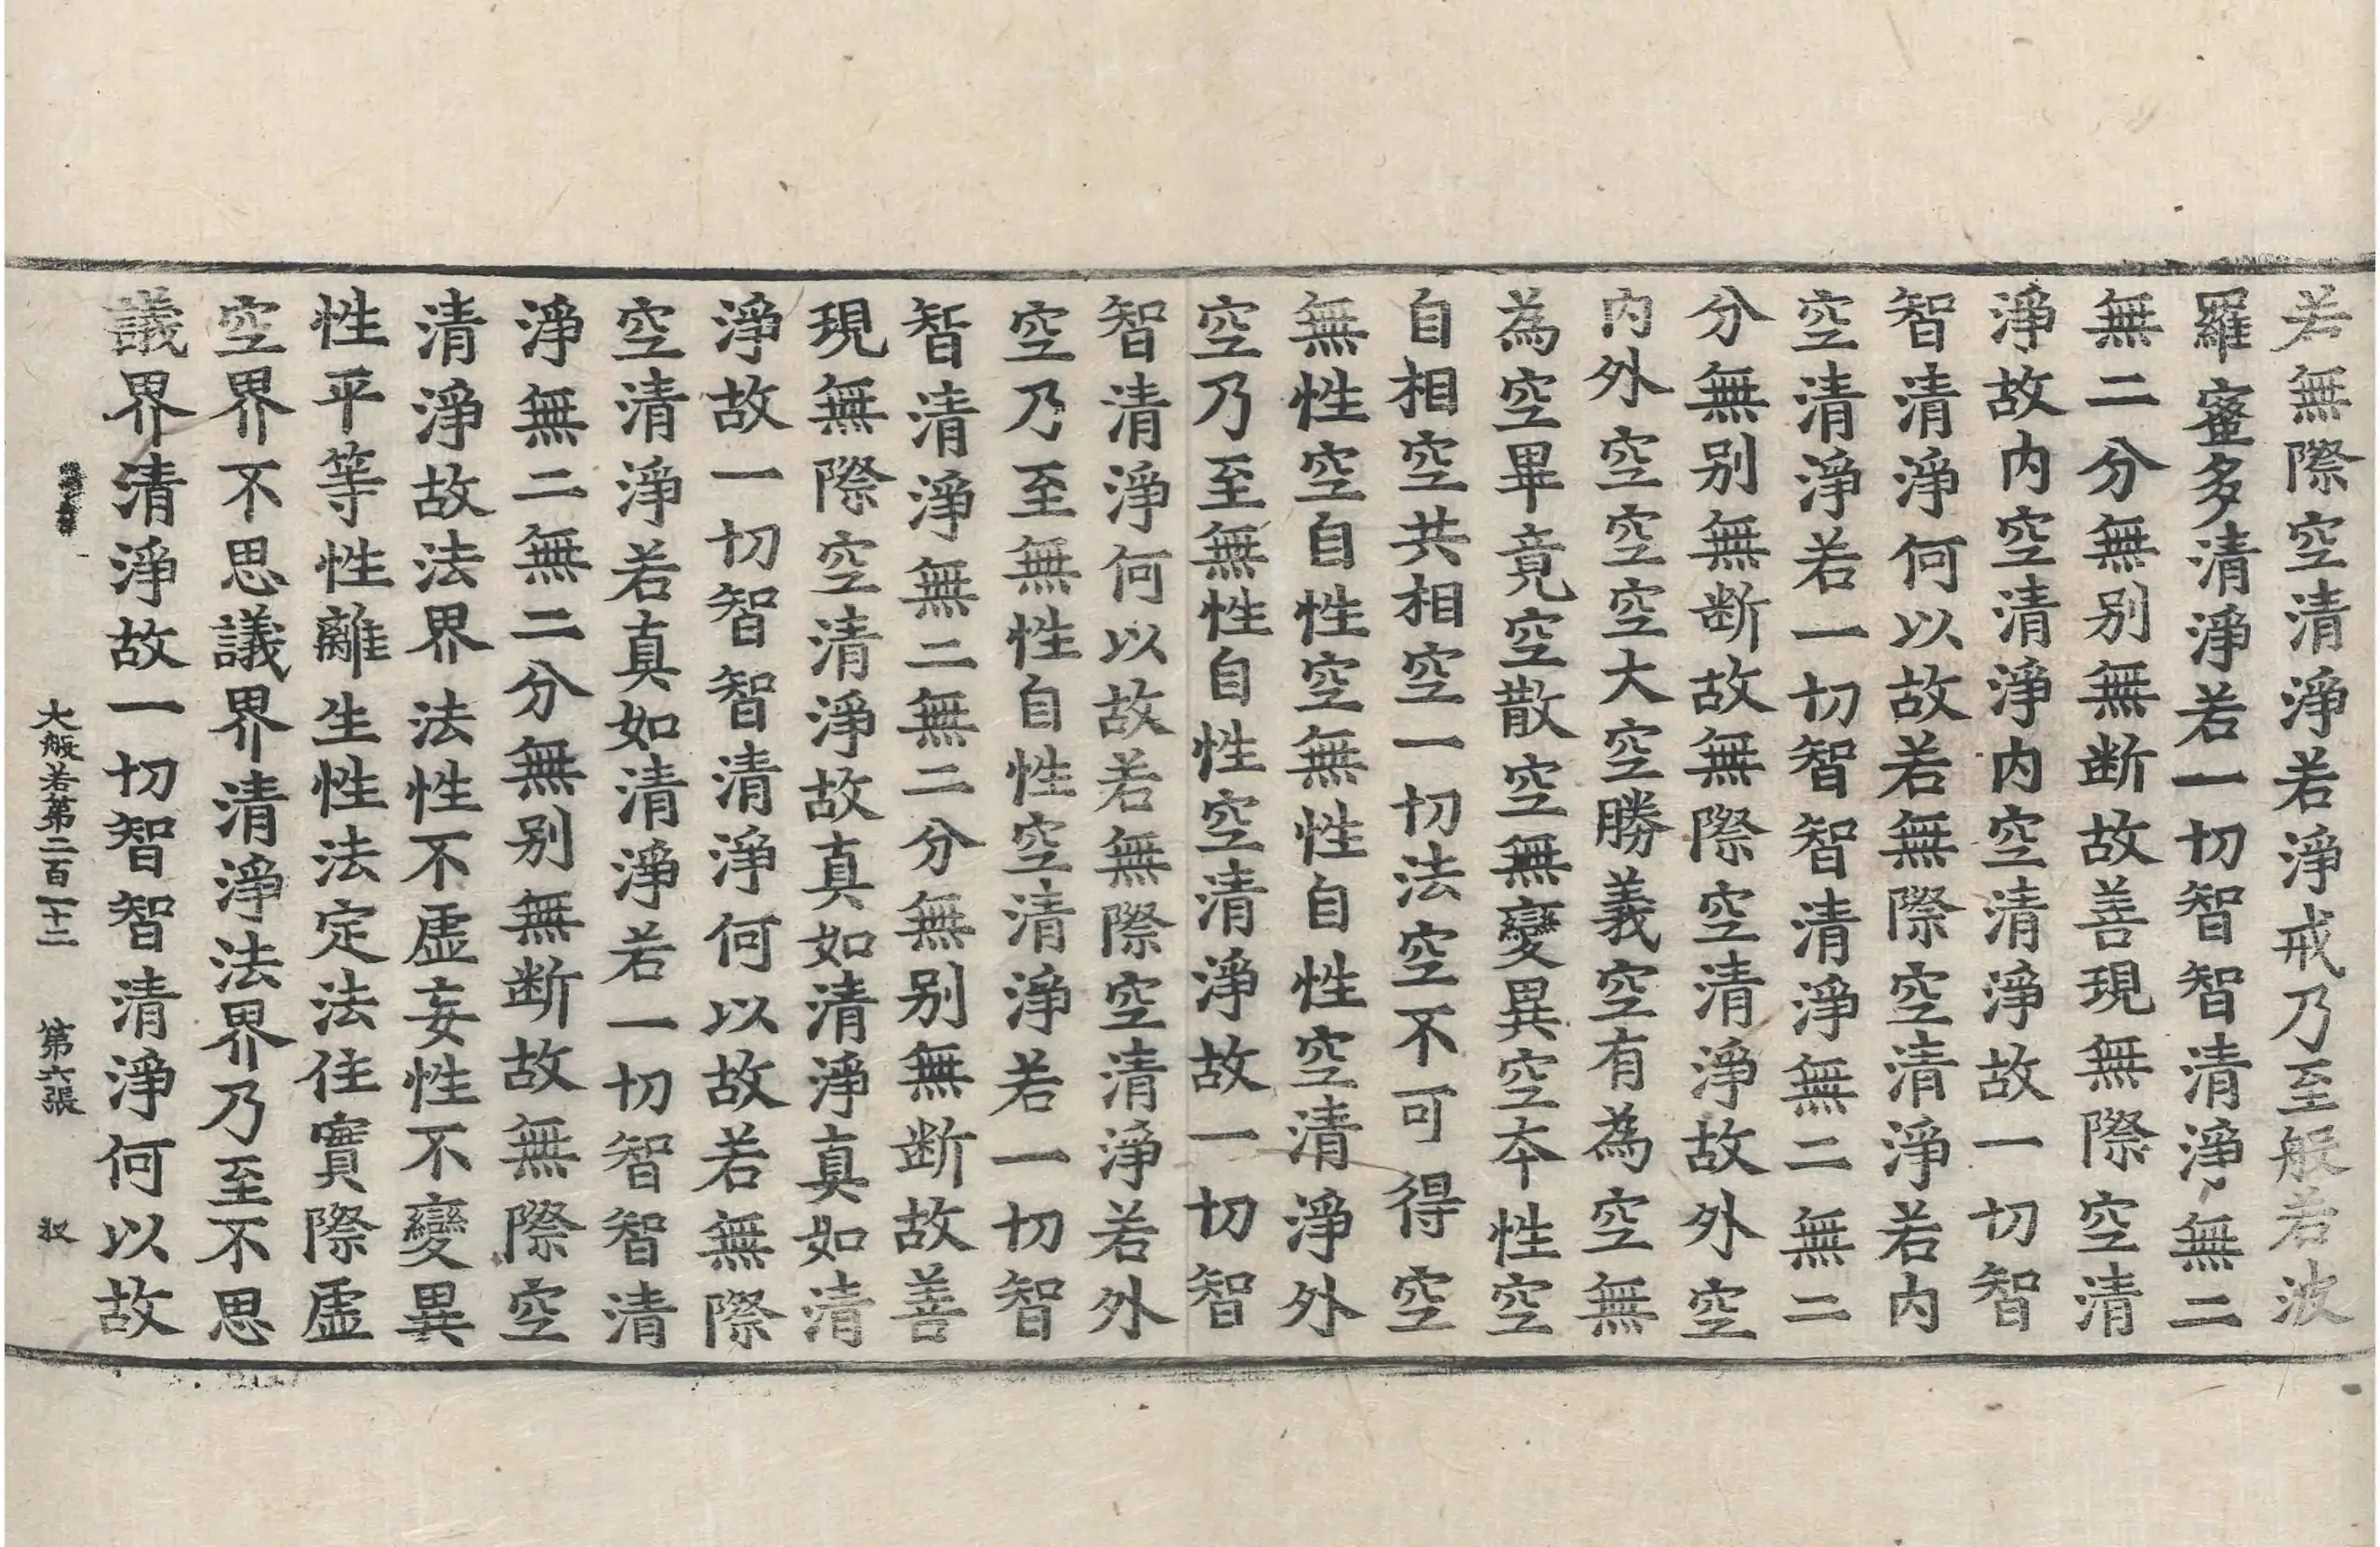 若無際空清淨若淨戒乃至般若波
羅蜜多清淨若一切智智清淨無二
無二分無别無断故善現無際空清
淨故内空清淨内空清淨故一切智
智清淨何以故若無際空清淨若内
空清淨若一切智智清淨無二無二
分無别無断故無際空清淨故外空
内外空空空大空勝義空有為空無
為空畢竟空散空無變異空本性空
自相空共相空一切法空不可得空
無性空自性空無性自性空清淨外
空乃至無性自性空清淨故一切智
智清淨何以故若無際空清淨若外
空乃至無性自性空清淨若一切智
智清淨無二無二分無别無断故善
現無際空清淨故真如清淨真如清
淨故一切智智清淨何以故若無際
空清淨若真如清淨若一切智智清
淨無二無二分無别無断故無際空
清淨故法界法性不虛妄性不變異
性平等性離生性法定法住實際虛
空界不思議界清淨法界乃至不思
議界清淨故一切智智清淨何以故
大般若第二百一十二 第六張